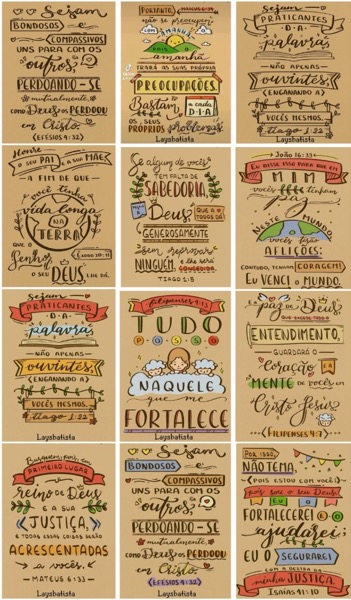 Sejam
BONDOSOS e
COMPASSIVOS
UNS PARA COM OS
outros,
PERDOANDO-SE
mutualmente,
COMO Deus OS PERDOOU
em Cristo.
(EFÉSIOS 4:32)
PORTANTO,
não se preocupem
COM O AMANHÃ
POIS O
amanhã
TRARÁ AS SUAS PRÓPRIAS
PREOCUPAÇÕES.
Bastam a cada
DIA
OS SEUS
PRÓPRIOS problemas.
Laysbatista
Sejam
PRATICANTES
-D-A-
palavra
NÃO APENAS
ouvintes,
(ENGANANDO A)
VOCÊS MESMOS.
Tiago 1:22
Honre
O SEU PAI E A SUA MÃE
A FIM DE QUE
você tenha
vida longa
NA
TERRA
QUE O
Senhor,
O SEU DEUS, LHE DÁ.
Se algum de vocês
TEM FALTA DE
SABEDORIA,
Peça a
Deus,
QUE A
TODOS DÁ
GENEROSAMENTE
sem reprovar
NINGUÉM, e lhe será
CONCEDIDA.
TIAGO 1:5
João 16:33
EU DISSE ISSO PARA QUE EM
MIM
vocês tenham
paz
NESTE MUNDO
vocês terão
AFLIÇÕES;
CONTUDO, TENHAM CORAGEM!
EU VENCI O MUNDO.
Sejam
PRATICANTES
-D-A-
palavra
NÃO APENAS
ouvintes,
(ENGANANDO A)
VOCÊS MESMOS.
Tiago 1:22
Laysbatista
Filipenses 4:13
TUDO
POSSO
NAQUELE
que me
FORTALECE
Laysbatista
E a paz de Deus,
QUE EXCEDE TODO O
ENTENDIMENTO,
GUARDARÁ O
Coração E A
MENTE de vocês em
Cristo Jesus.
FILIPENSES 4:7
Busquem, pois, em
PRIMEIRO LUGAR
O reino de Deus
E A SUA
JUSTIÇA,
E TODAS ESSAS COISAS SERÃO
ACRESCENTADAS
a vocês.
MATEUS 6:33
Laysbatista
Sejam
BONDOSOS e
COMPASSIVOS
UNS PARA COM OS
outros,
PERDOANDO-SE
mutualmente,
COMO Deus OS PERDOOU
em Cristo.
(EFÉSIOS 4:32)
Laysbatista
POR ISSO,
NÃO TEMA,
POIS ESTOU COM VOCÊ
pois sou o seu Deus
EU O
FORTALECEREI E O
ajudarei;
EU O SEGURAREI
COM A DESTRA DA
minha JUSTIÇA.
ISAÍAS 41:10